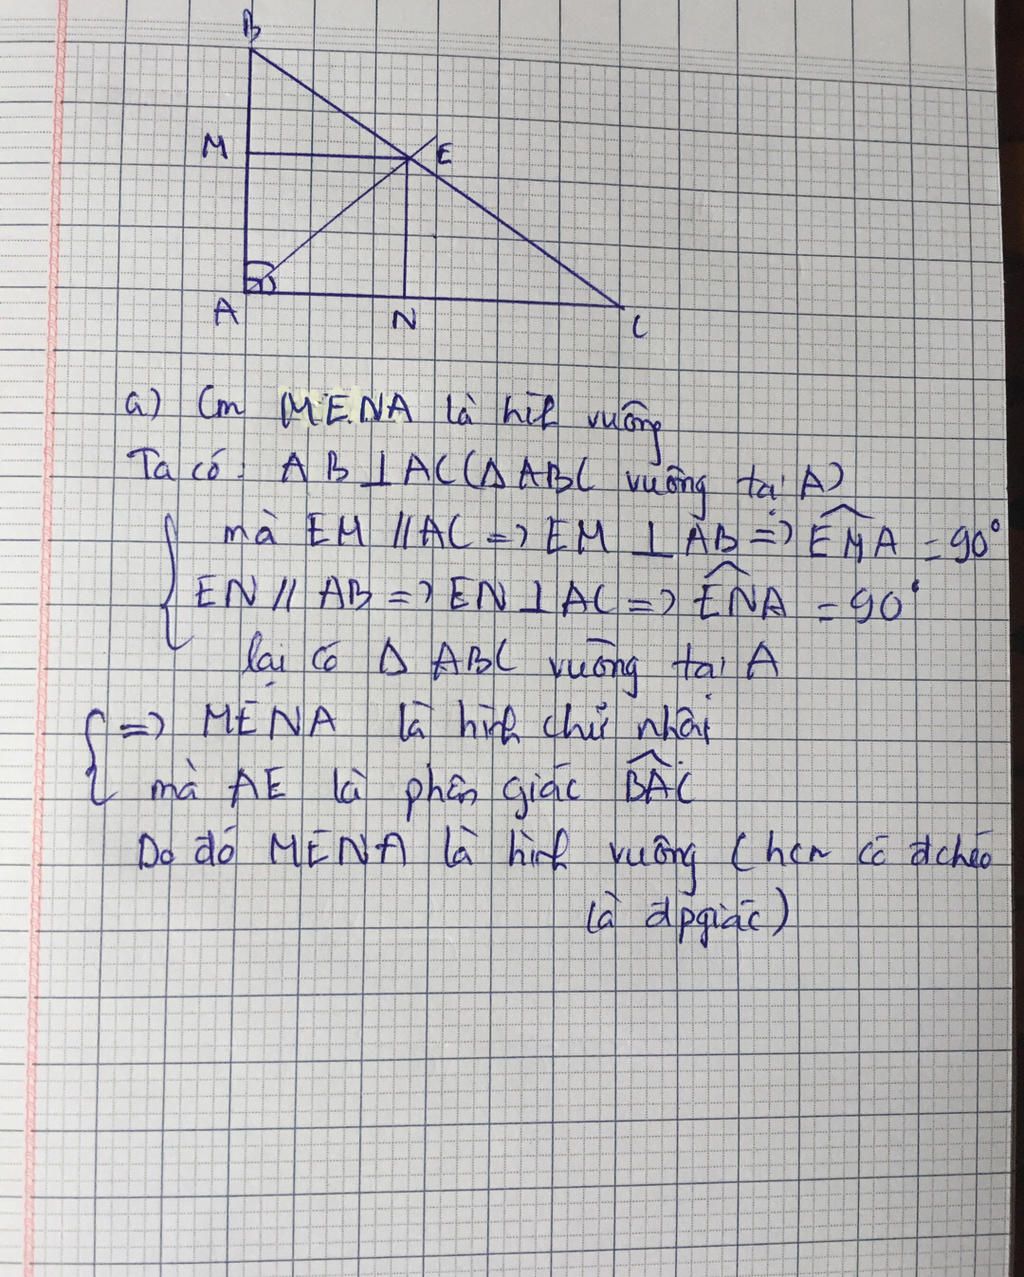 B
M
E
A
N
C
a) Cm MENA là hình vuông
Ta có: AB ⊥ AC (Δ ABC vuông tại A)
mà EM // AC => EM ⊥ AB => EMA = 90°
EN // AB => EN ⊥ AC => ENA = 90°
lại có Δ ABC vuông tại A
=> MENA là hình chữ nhật
mà AE là phân giác BAC
Do đó MENA là hình vuông (hcn có đchéo
là đpgiác)